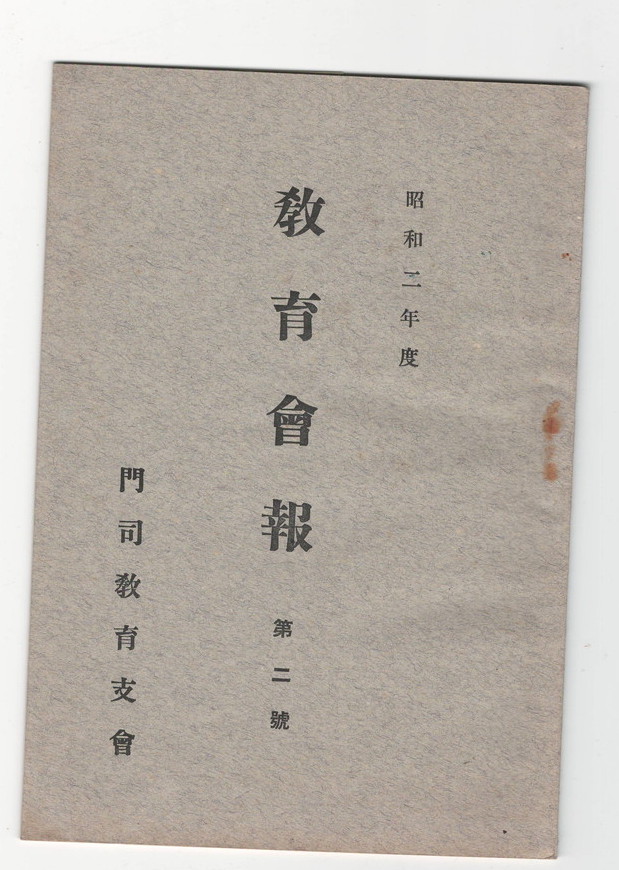 昭和二年度
敎育會報 第二號
門司敎育支會